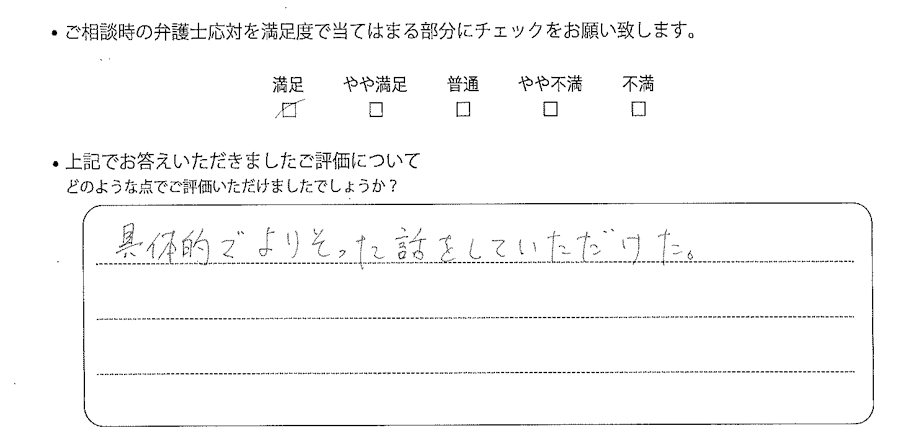 ・ご相談時の弁護士応対を満足度で当てはまる部分にチェックをお願い致します。
満足 やや満足 普通 やや不満 不満
☑ □ □ □ □
・上記でお答えいただきましたご評価について
どのような点でご評価いただけましたでしょうか？
具体的でよりそった話をしていただけた。